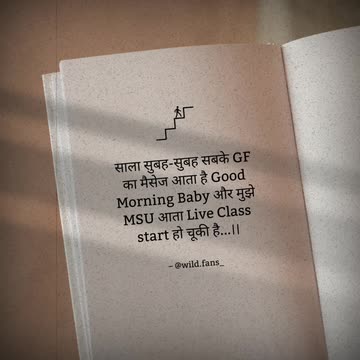 साला सुबह-सुबह सबके GF
का मैसेज आता है Good
Morning Baby और मुझे
MSU आता Live Class
start हो चूकी है...||
– @wild.fans_